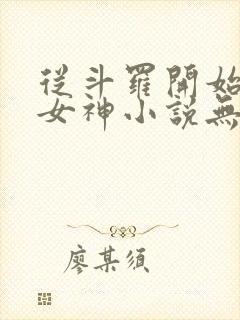 從斗羅開始
女神小說無
廖某須